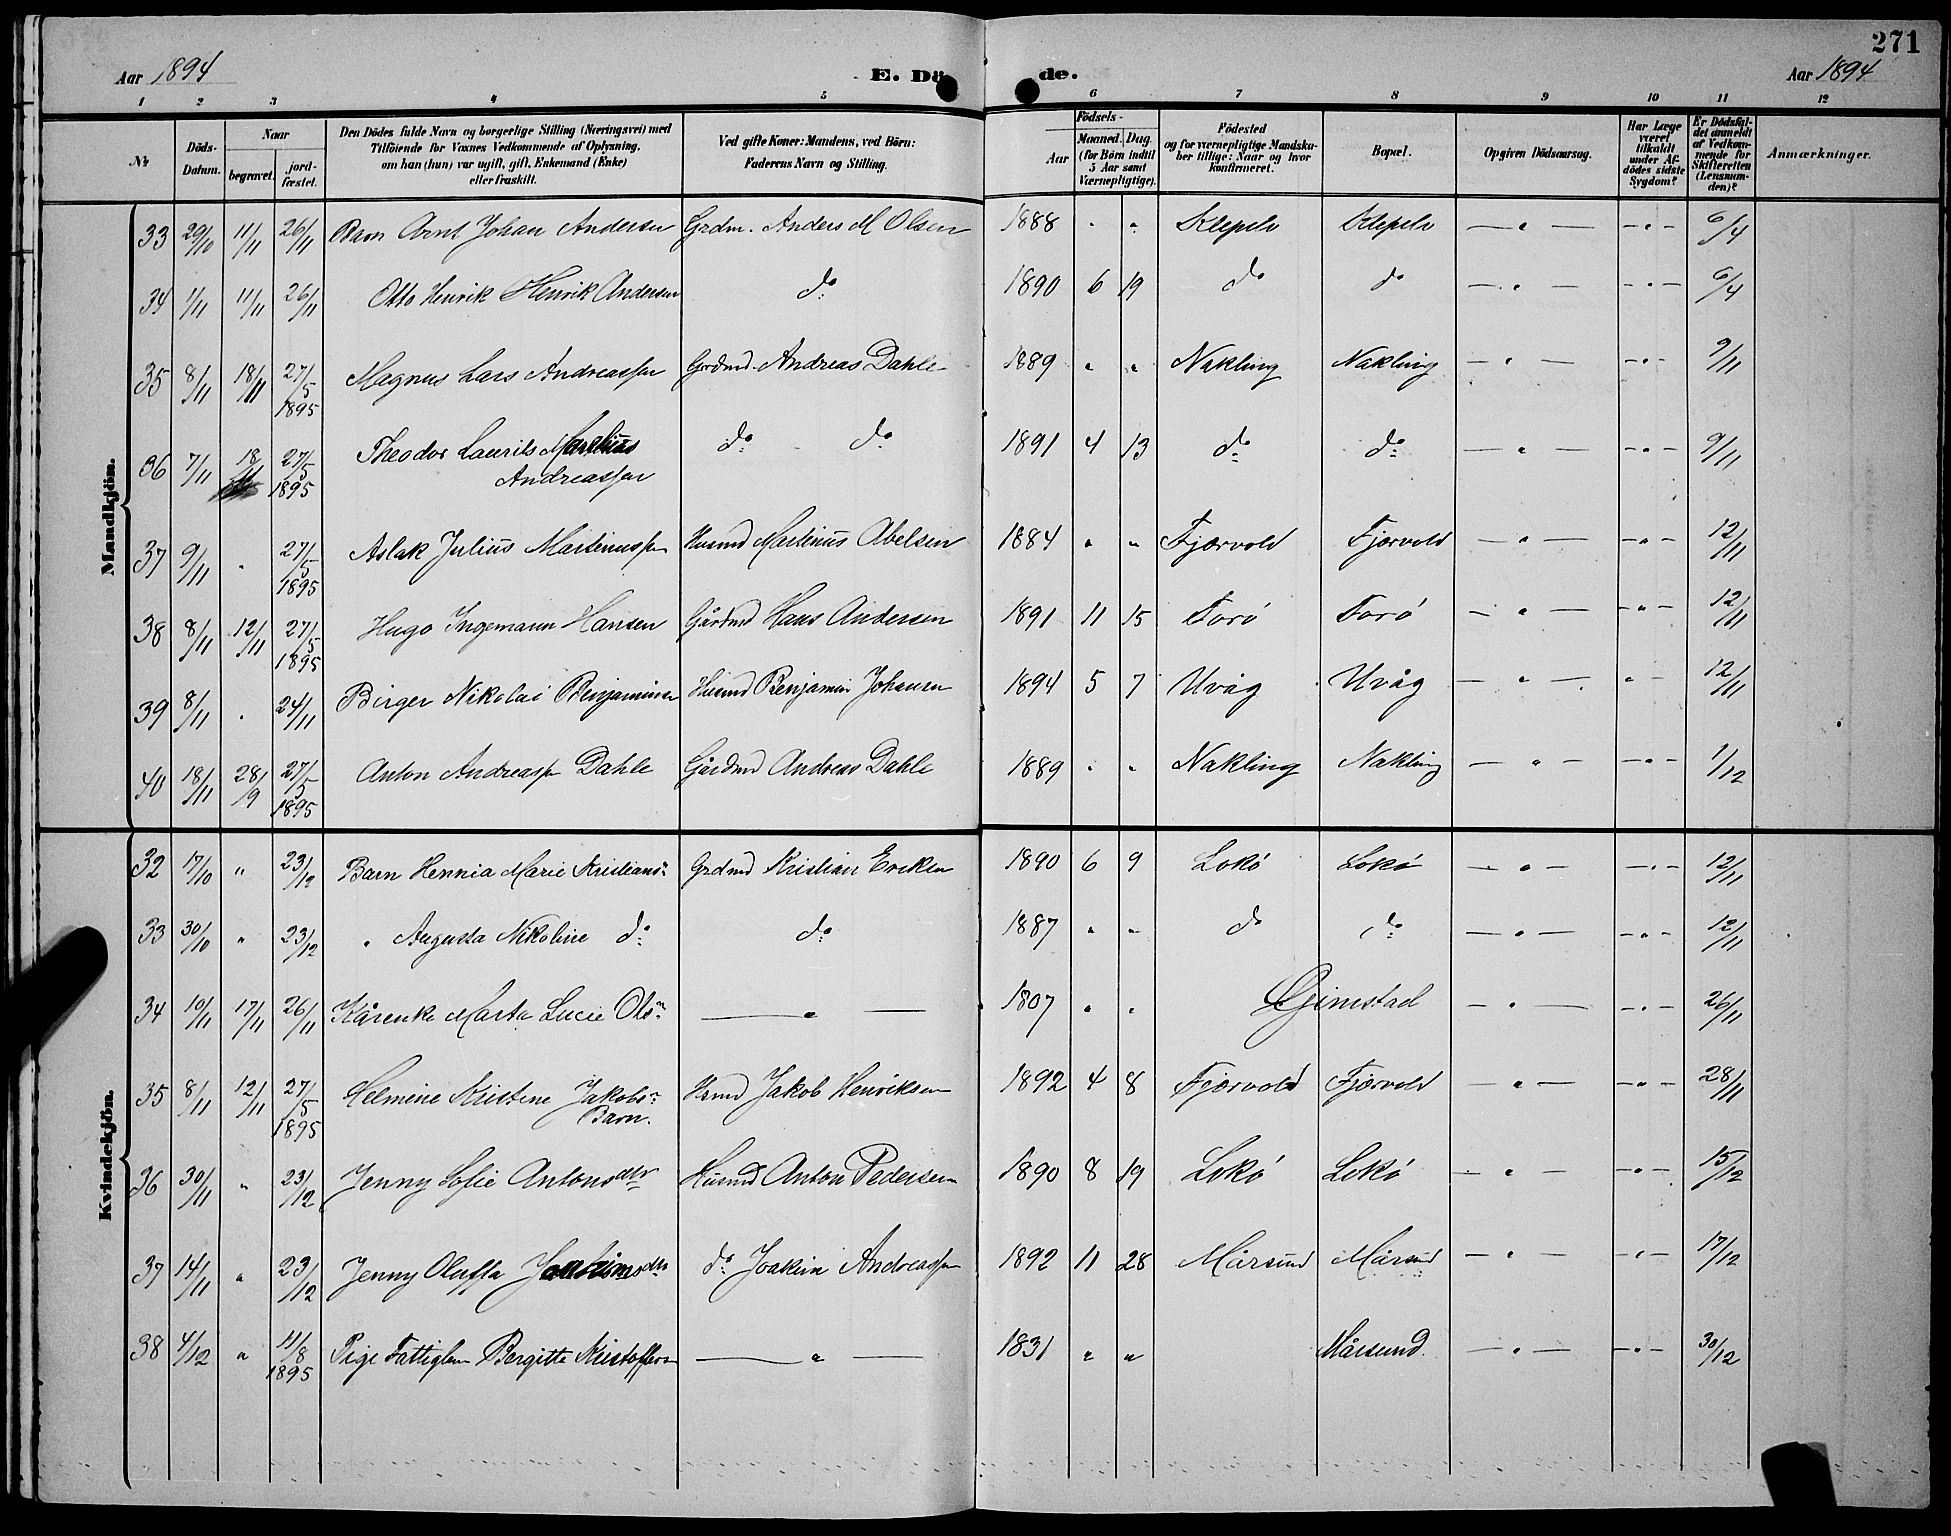 271
Aar 1894 E. Dö de. Aar 1894
1 2 3 4 5 6 7 8 9 10 11 12
№ Döds-Datum. Naar begravet. jordfæstet. Den Dödes fulde Navn og borgerlige Stilling (Næringsvei) med Tilföiende for Voxnes Vedkommende af Oplysning, om han (hun) var ugift, gift, Enkemand (Enke) eller fraskilt. Ved gifte Koner: Mandens, ved Börn: Faderens Navn og Stilling. Födsels- Aar Maaned. Dag. (for Börn indtil 5 Aar samt Værnepligtige). Födested og for værnepligtige Mandskaber tillige: Naar og hvor konfirmeret. Bopæl. Opgiven Dödsaarsag. Har Læge været tilkaldt under Afdödes sidste Sygdom? Er Dödsfaldet anmeldt af Vedkommende for Skifteretten (Lensmanden)? Anmærkninger.
Mandkjön.
33 29/10 11/11 26/11 Barn Arnt Johan Andersen Grdm. Anders M Olsen 1888 " " Klepels Klepels — " — - " - 6/4
34 1/11 11/11 26/11 Otto Henrik Henrik Andersen do 1890 6 19 do do — " — - " - 6/4
35 8/11 18/11 27/5 1895 Magnus Lars Andreassen Grdmd. Andreas Dahle 1889 " " Nakling Nakling — " — - " - 9/11
36 7/11 18/11 27/5 1895 Theodor Laurits Marelius
Andreassen do do 1891 4 13 do do — " — - " - 9/11
37 9/11 " 27/5 1895 Aslak Julius Martinussen Husmd Martinus Abelsen 1884 " " Fjærvold Fjærvold — " — - " - 12/11
38 8/11 12/11 27/5 1895 Hugo Ingemann Hansen Gårdmd Hans Andersen 1891 11 15 Torö Torö — " — - " - 12/11
39 8/11 " 24/11 Birger Nikolai Benjaminsen Husmd Benjamin Johansen 1894 5 7 Uvåg Uvåg — " — " - 12/11
40 18/11 28/19 27/5 1895 Anton Andreassen Dahle Gårdmd Andreas Dahle 1889 " " Nakling Nakling — " — - " - 1/12
Kvindekjön.
32 17/10 " 23/12 Barn Hennia Marie Kristians: Grdmd Kristian Eriksen 1890 6 9 Lokö Lokö — " — - " - 12/11
33 30/10 " 23/12 " Augusta Nikoline do do 1887 " " do do — " — - " - 12/11
34 10/11 17/11 26/11 Kårenke Marta Lucie Ols: — " — 1807 " " Gimstad — " — - " - 26/11
35 8/11 12/11 27/5 1895 Helmine Kristine Jakobs:
Barn. Hsmd Jakob Henriksen 1892 4 8 Fjærvold Fjærvold — " — - " - 28/11
36 30/11 " 23/12 Jenny Sofie Antonsdtr Husmd Anton Pedersen 1890 8 19 Lokö Lokö — " — - " - 15/12
37 14/11 " 23/12 Jenny Olaffa Joakimsdtr do Joakim Andreassen 1892 11 28 Mårsund Mårsund — " — - " - 17/12
38 4/12 " 11/8 1895 Pige Fattiglem Bergitte Kristoffers — " — 1831 " " Mårsund. — " — - " - 30/12